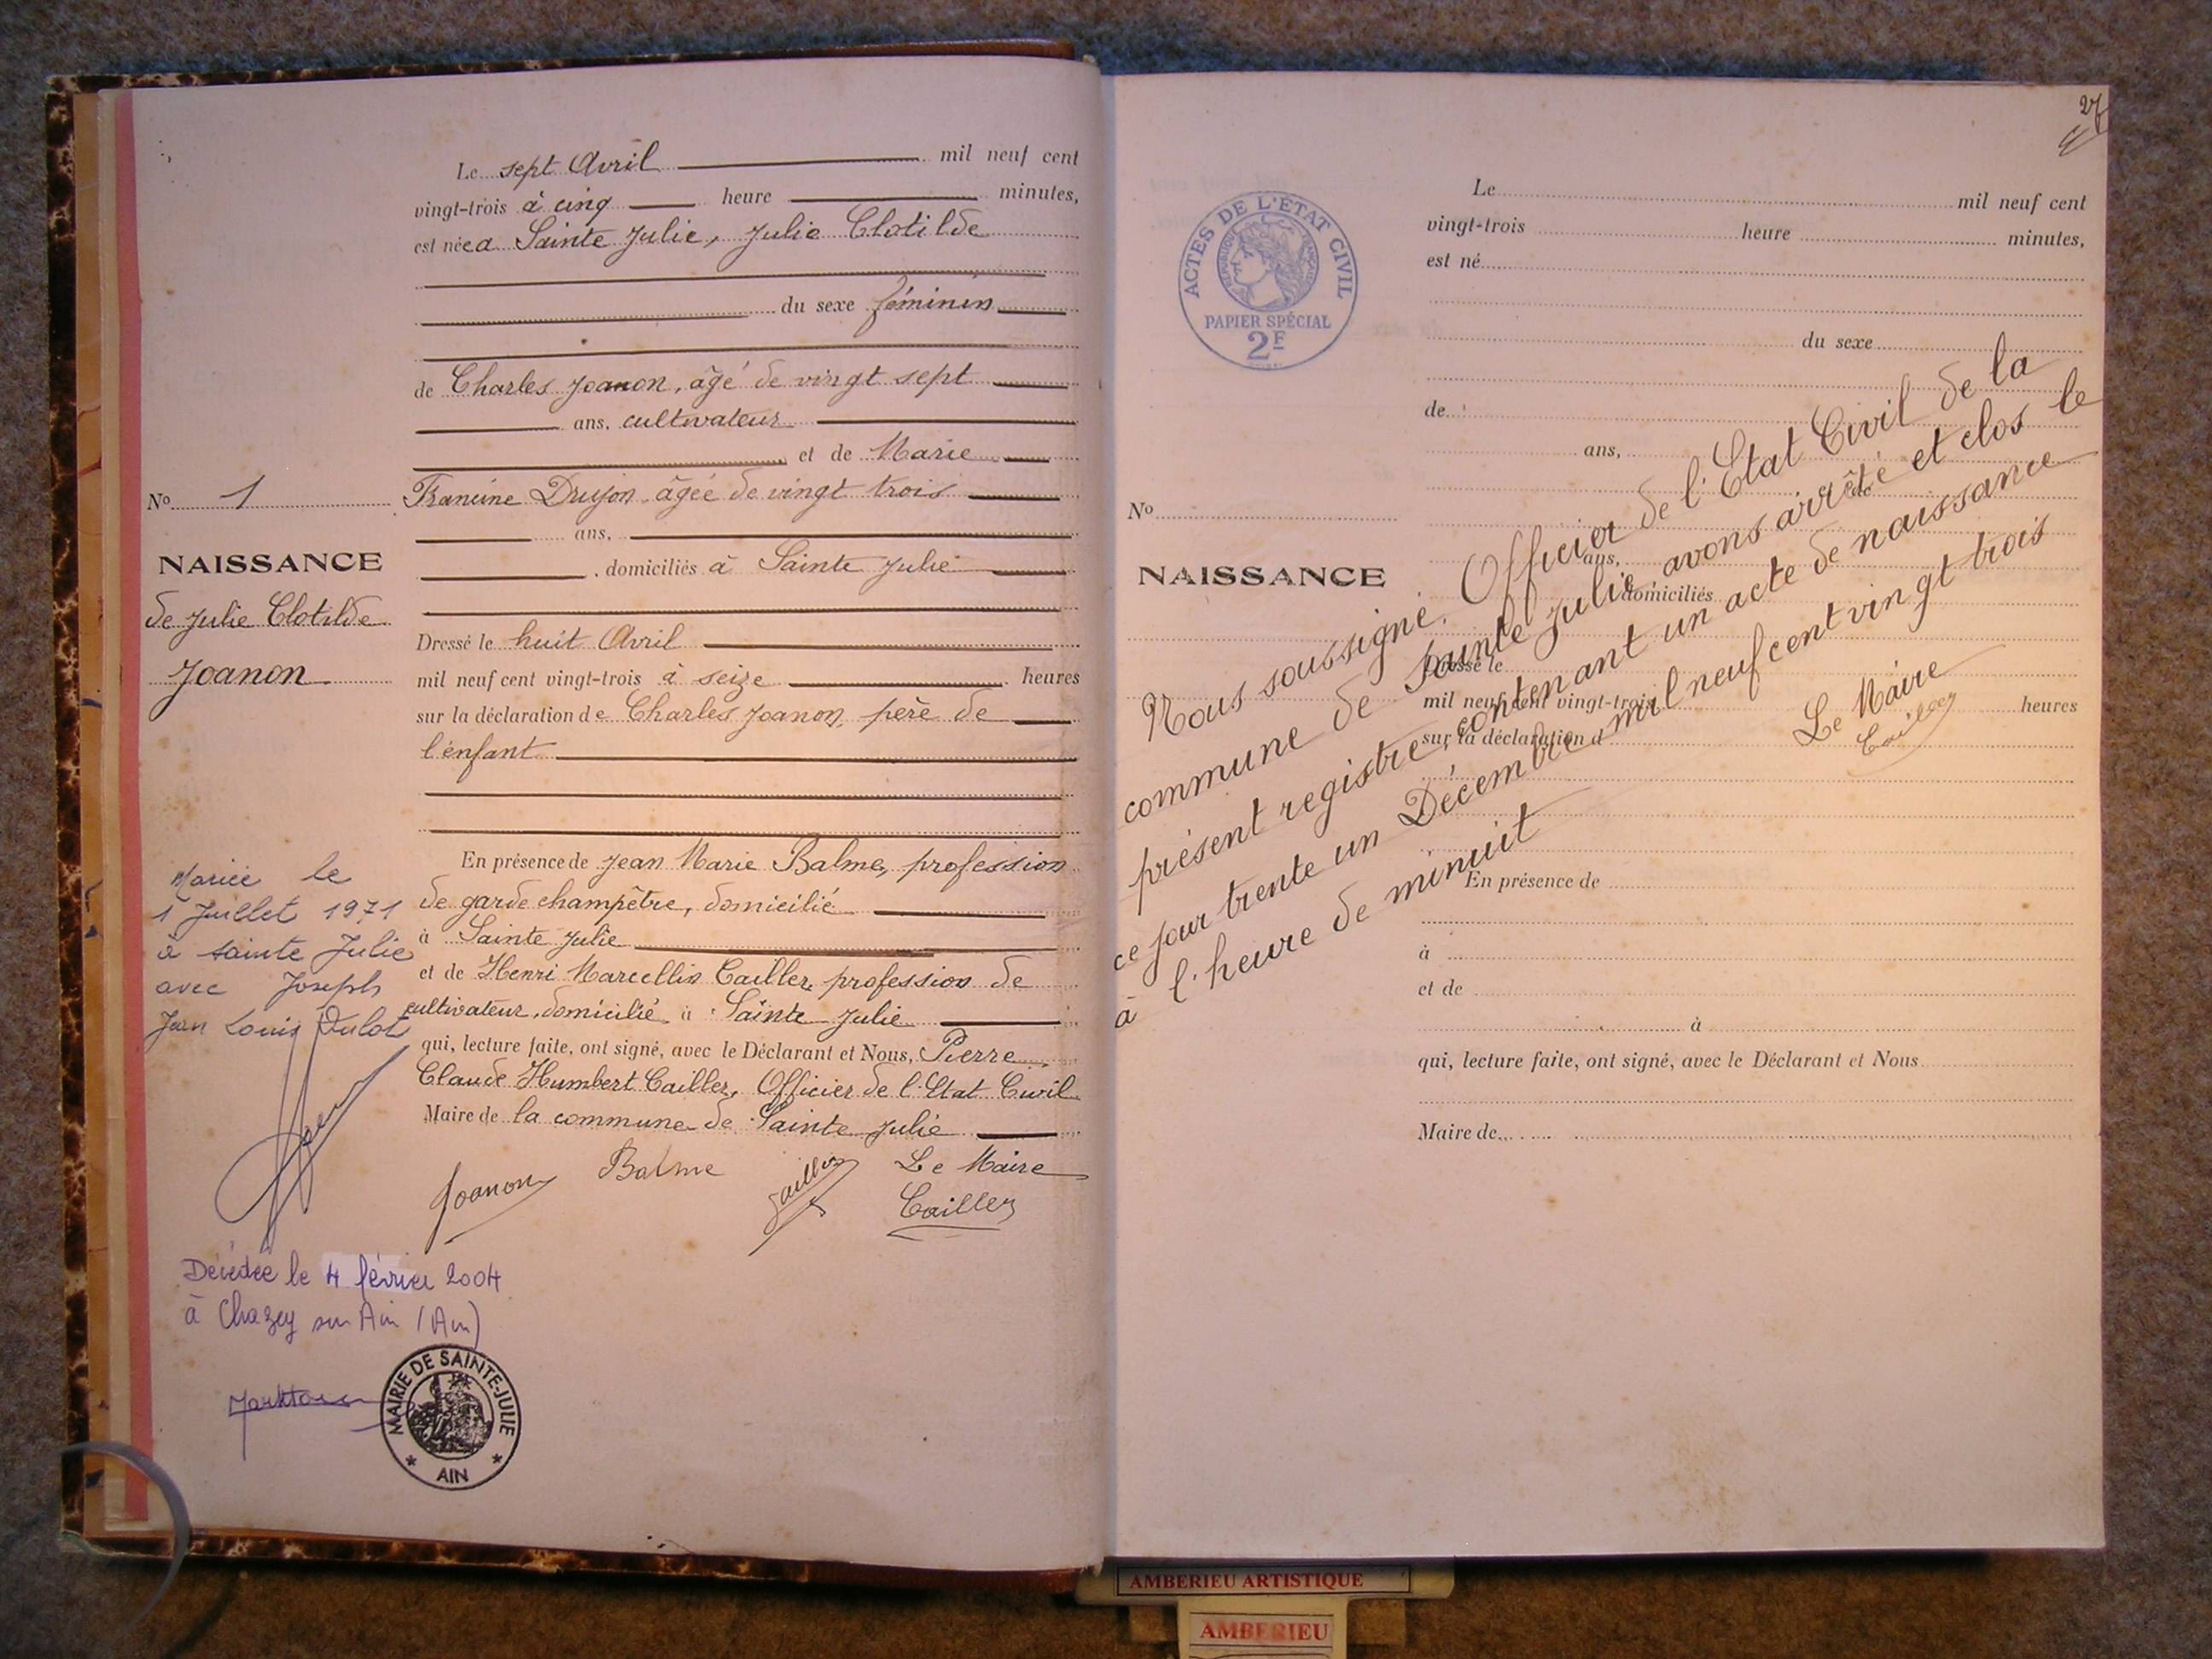 Le sept Avril mil neuf cent
vingt-trois à cinq heure minutes,
est née a Sainte Julie, Julie Clotilde
du sexe féminin
de Charles Joanon, âgé de vingt sept
ans, cultivateur
et de Marie
Francine Drujon âgée de vingt trois
ans,
, domiciliés à Sainte Julie
Dressé le huit Avril
mil neuf cent vingt-trois à seize heures
sur la déclaration de Charles Joanon, père de
l'enfant
En présence de Jean Marie Balme, profession
de garde champêtre, domicilié
à Sainte Julie
et de Henri Marcellin Cailler, profession de
cultivateur, domicilié à Sainte Julie
qui, lecture faite, ont signé, avec le Déclarant et Nous, Pierre
Claude Humbert Cailler, Officier de l'Etat Civil
Maire de la commune de Sainte Julie
Joanon Balme Cailler Le Maire
Cailler
No 1
NAISSANCE
de Julie Clotilde
Joanon
Mariée le
1 Juillet 1971
à sainte Julie
avec Joseph
Jean Louis Dulot
Décédée le 4 février 2004
à Chazey sur Ain (Ain)
MAIRIE DE SAINTE-JULIE
* AIN *
27
ACTES DE L'ÉTAT CIVIL
RÉPUBLIQUE FRANÇAISE
PAPIER SPÉCIAL
2F
Le mil neuf cent
vingt-trois heure minutes,
est né
du sexe
de
ans,
et de
ans,
domiciliés
No
NAISSANCE
Dressé le
mil neuf cent vingt-trois heures
sur la déclaration d
En présence de
à
et de
à
qui, lecture faite, ont signé, avec le Déclarant et Nous
Maire de
Nous soussigné, Officier de l'Etat Civil de la
commune de Sainte Julie, avons arrêté et clos le
présent registre, contenant un acte de naissance
ce jour trente un Décembre mil neuf cent vingt trois
à l'heure de minuit
Le Maire
Cailler
AMBERIEU ARTISTIQUE
AMBERIEU